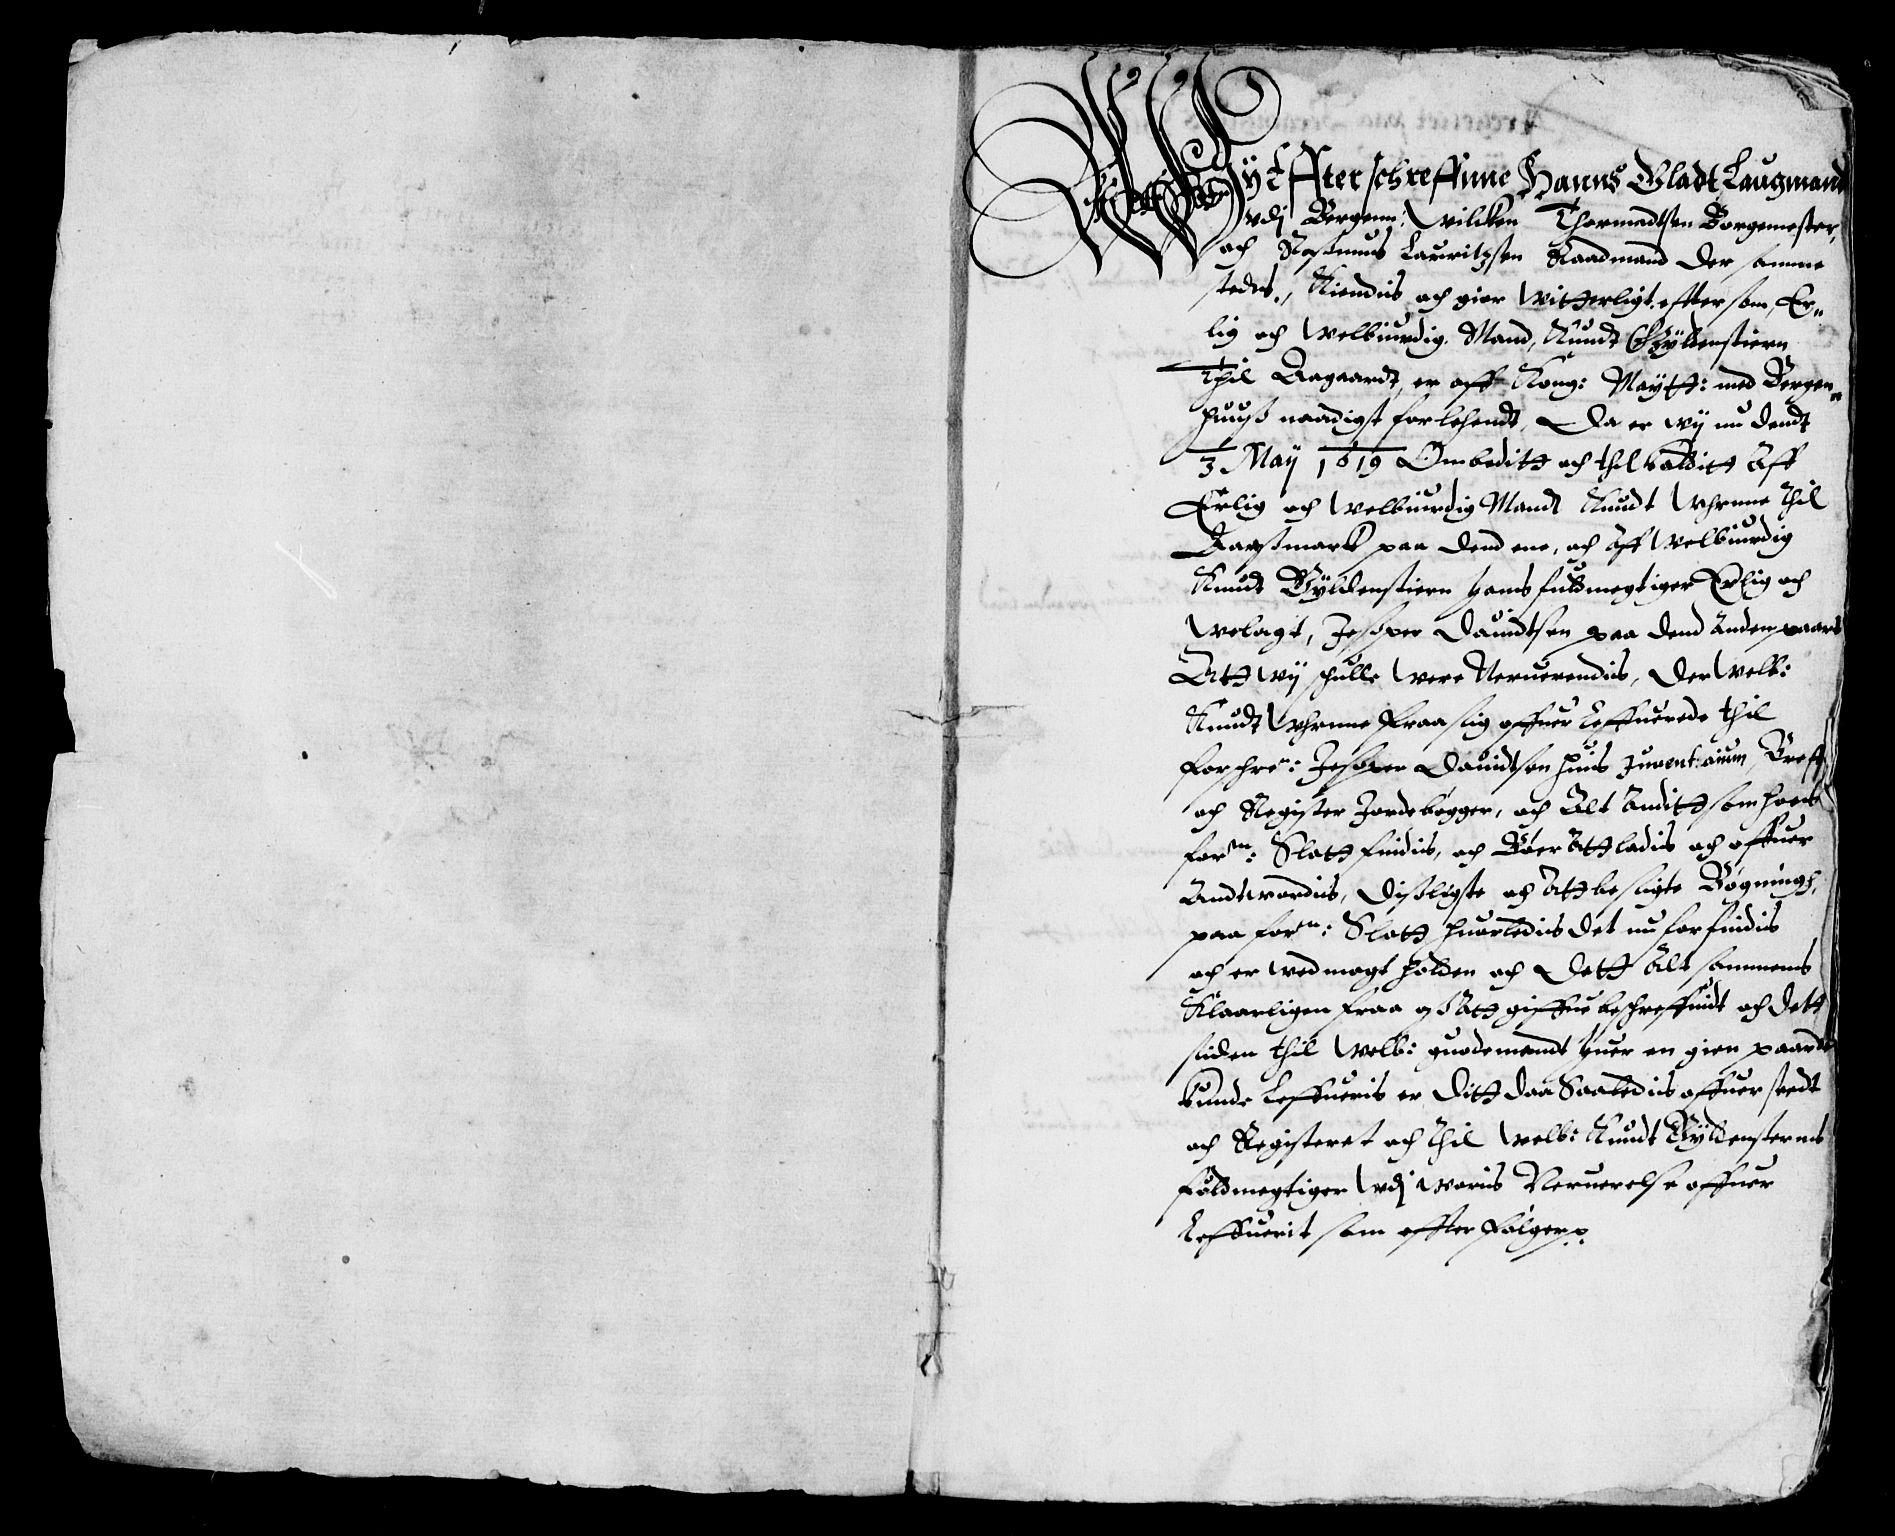 Wy Effterschreffnne Hanns Gladt Laugmand
vdj Bergenn, Willken Thormadtsen Borgemester,
och Rasmus Lauritzsen Raadmand der samme
steds, Kiendis och giør Witterligt, efftersom, Er„
lig och Welbiurdig Mand, Knudt Gyldenstiern
Thil Aagaardt, er aff Kong: Maytt: med Bergen„
huuss naadigst forlehendt, Da er wij nu dendt
3 Maij 1619 Ombeditt och thilkalditt Aff
Erlig och Welbiurdig Mandt Knudt Vhrnne thil
Aarsmarck paa dend ene, och Aff Welbiurdig
Knudt Gyldenstiern hans fuldmegtiger Erlig och
Welagt, Jesper Dauidtsen paa dend Anden paart
Att Wij schulle Were Neruerendis, der Welb:
Knudt Vhrnne fraa sig offuer Leffuerede thil
forschre: Jesper Dauidtsen huis Juventarium, Breff
och Register Jordebøgger, och Alt Anditt som paa
forn: Slott findis, och Bør Att ladis och offuer
Andtwordis, disligste och Att besigte Bøgnings,
paa forn: Slott huorledis det nu forfindis
och er wed magt holden och Dett Alt sammens
Klaarligen fraa oss Att giffue beschreffuidt och dett
siden thil Welb: guodemendt huer en gien paardt
kunde Leffueris er Ditt daa Saaledis offuerseedt
och Registeret och thil Welb: Knudt Gyldensterns
fuldmegtiger Vdj woris Neruerelse offuer
Leffuerit som effter følger